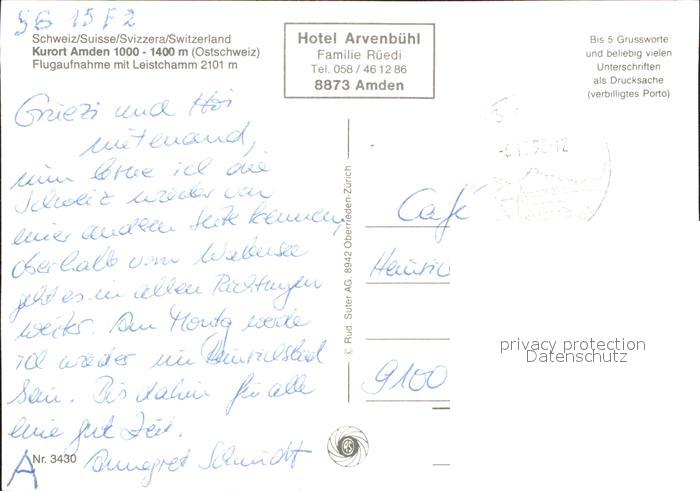 SG 15 F 2
Schweiz/Suisse/Svizzera/Switzerland
Kurort Amden 1000 - 1400 m (Ostschweiz)
Flugaufnahme mit Leistchamm 2101 m
Hotel Arvenbühl
Familie Rüedi
Tel. 058 / 46 12 86
8873 Amden
Bis 5 Grussworte
und beliebig vielen
Unterschriften
als Drucksache
(verbilligtes Porto)
Grüezi und Hoi
mitenand,
nun lerne ich die
Schweiz wieder von
einer anderen Seite kennen,
oberhalb vom Walensee
geht es in allen Richtungen
weiter. Am Montag werde
ich wieder im
sein. Bis dahin für alle
eine gute Zeit.
Annegret Schmidt
A
Nr. 3430
© Rud. Suter AG, 8942 Oberrieden-Zürich
RS
Café
Heinric
9100
privacy protection
Datenschutz